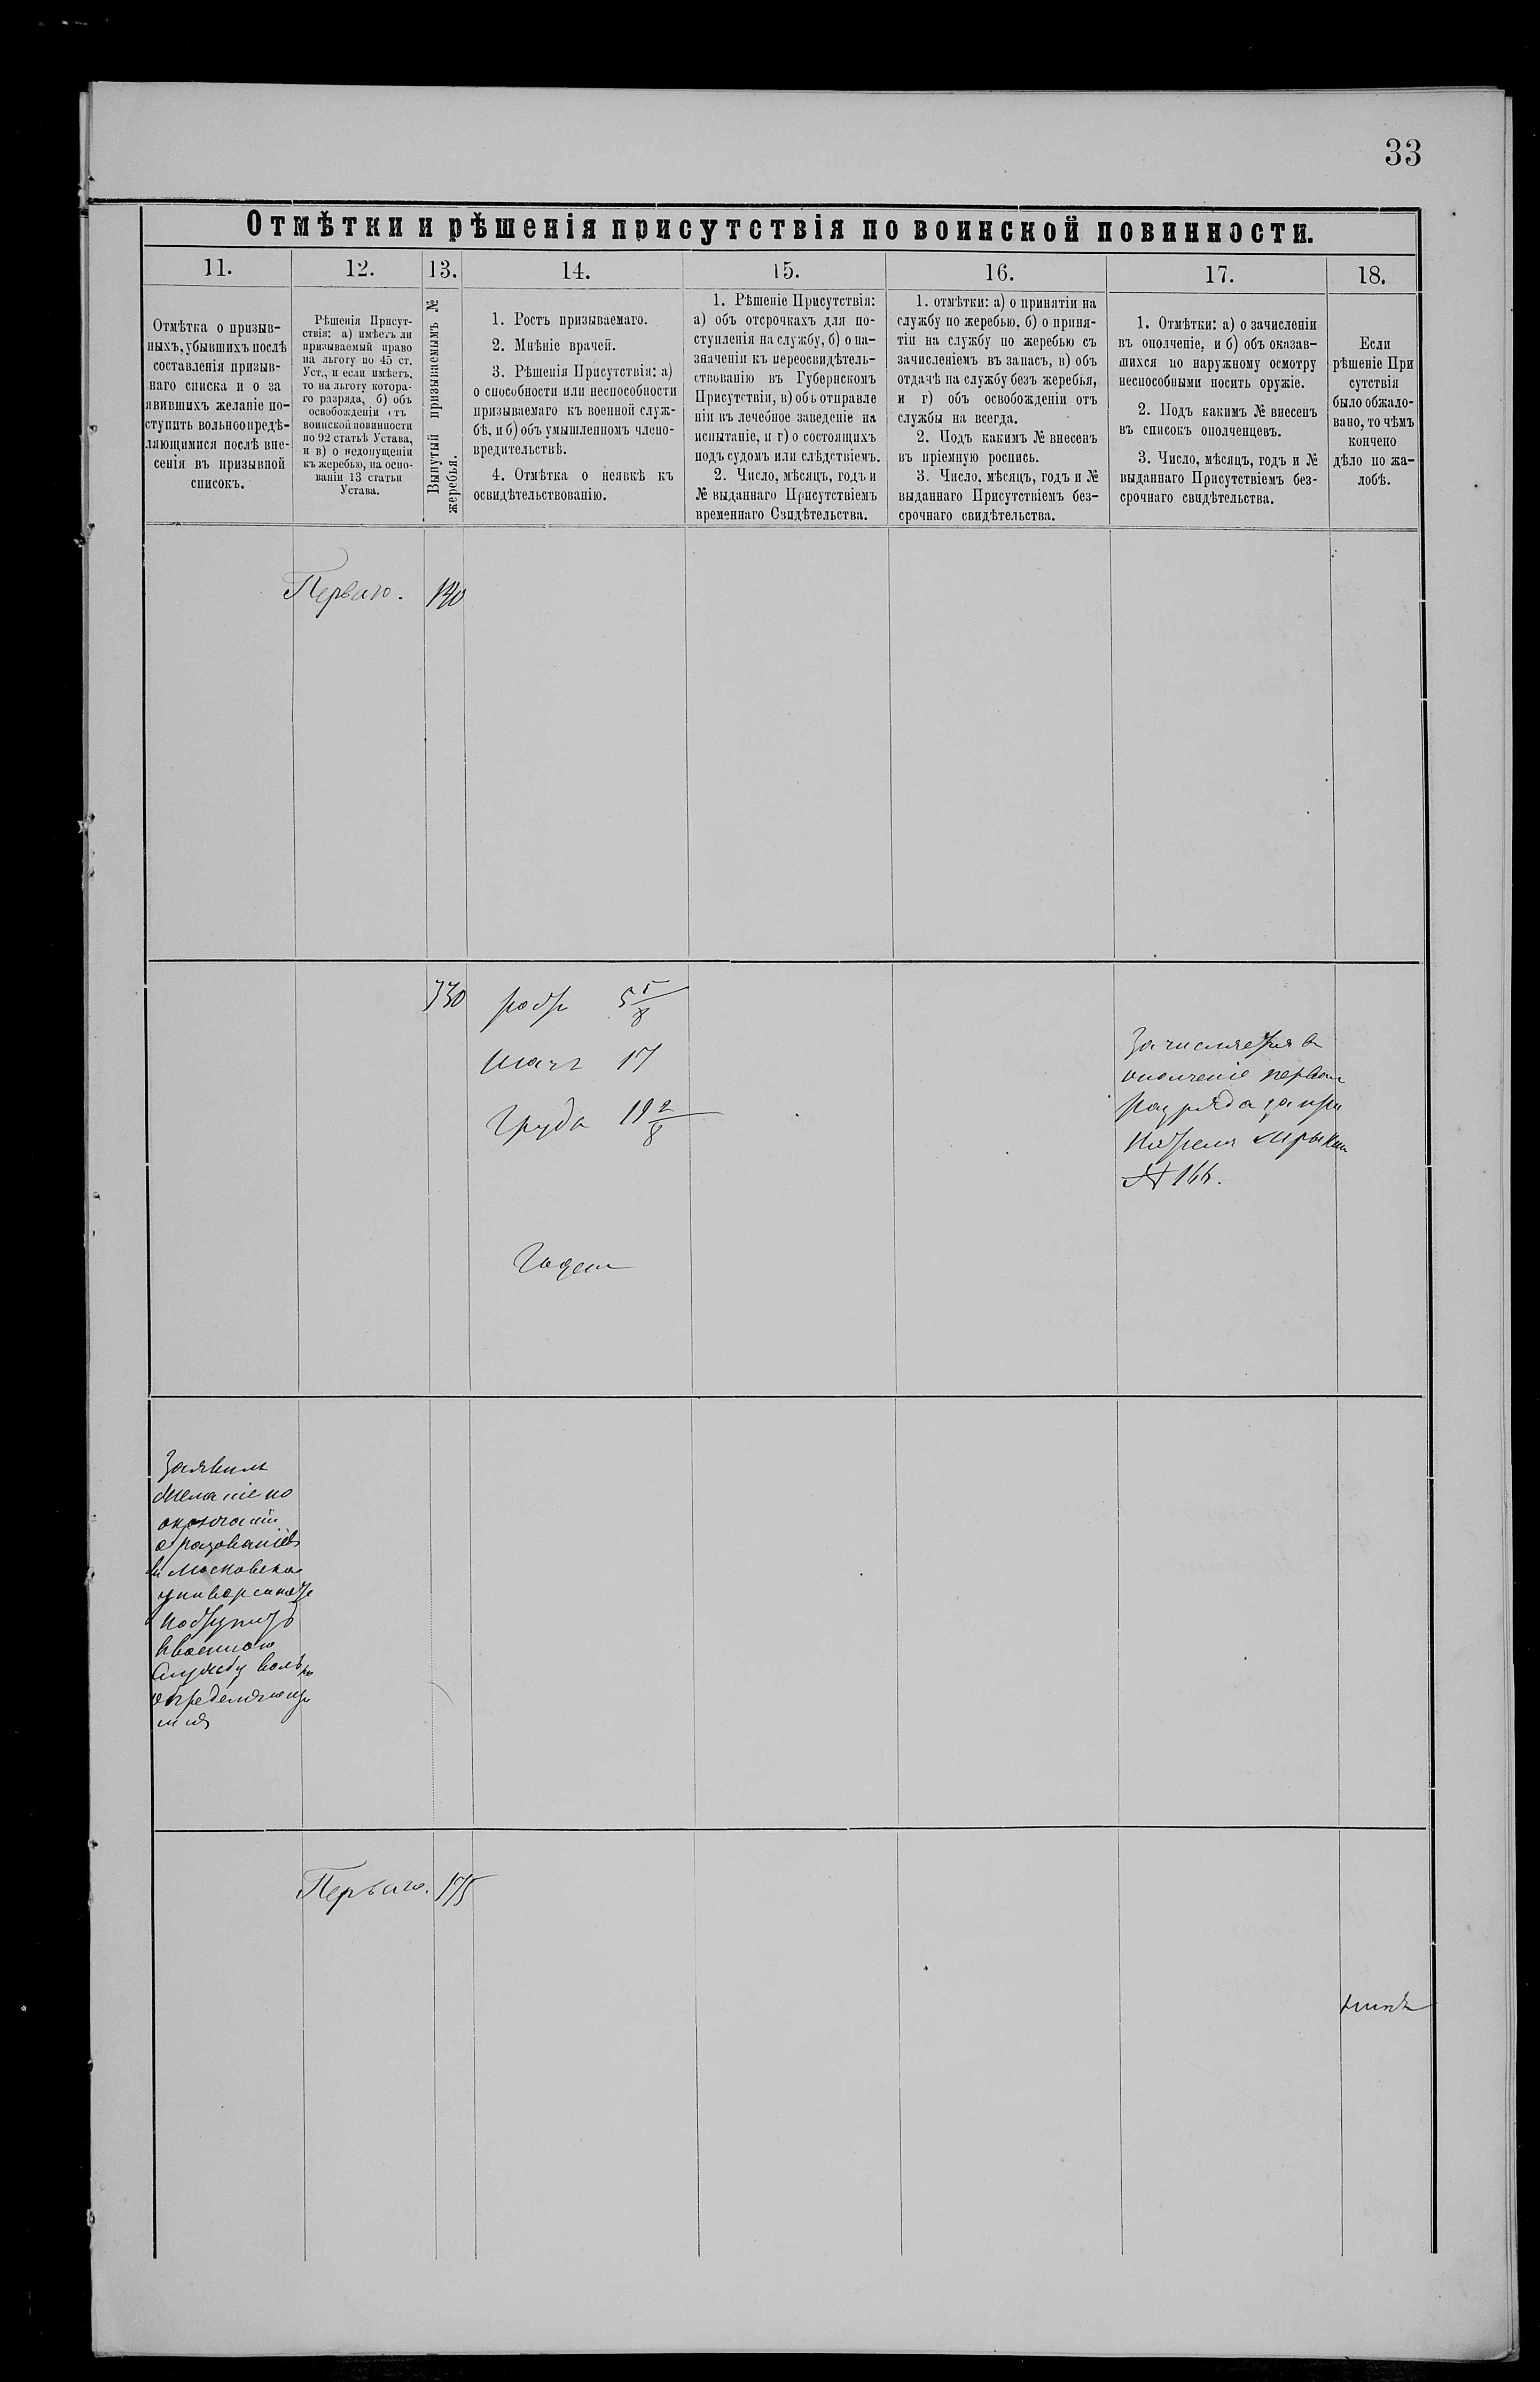 33
Отмѣтки и рѣшенія присутствія по воинской повинности.
11.
12.
13.
14.
15.
16.
17.
18.
Отмѣтка о призыв-
ныхъ, убывшихъ послѣ
составленія призыв-
наго списка и о за
явившихъ желаніе по-
ступить вольноопредѣ-
ляющимися послѣ вне-
сенія въ призывной
списокъ.
Рѣшенія Присут-
ствія: а) имѣетъ ли
призываемый право
на льготу по 45 ст.
Уст., и если имѣетъ,
то на льготу котора-
го разряда, б) объ
освобожденіи отъ
воинской повинности
по 92 статьѣ Устава,
и в) о недопущеніи
къ жеребью, на осно-
ваніи 13 статьи
Устава.
Вынутый призываемымъ №
жеребья.
1. Ростъ призываемаго.
2. Мнѣніе врачей.
3. Рѣшенія Присутствія: а)
о способности или неспособности
призываемаго къ военной служ-
бѣ, и б) объ умышленномъ члено-
вредительствѣ.
4. Отмѣтка о неявкѣ къ
освидѣтельствованію.
1. Рѣшеніе Присутствія:
а) объ отсрочкахъ для по-
ступленія на службу, б) о на-
значеніи къ переосвидѣтель-
ствованію въ Губернскомъ
Присутствіи, в) объ отправле
ніи въ лечебное заведеніе на
испытаніе, и г) о состоящихъ
подъ судомъ или слѣдствіемъ.
2. Число, мѣсяцъ, годъ и
№ выданнаго Присутствіемъ
временнаго Свидѣтельства.
1. отмѣтки: а) о принятіи на
службу по жеребью, б) о приня-
тіи на службу по жеребью съ
зачисленіемъ въ запасъ, в) объ
отдачѣ на службу безъ жеребья,
и г) объ освобожденіи отъ
службы на всегда.
2. Подъ какимъ № внесенъ
въ пріемную роспись.
3. Число, мѣсяцъ, годъ и №
выданнаго Присутствіемъ без-
срочнаго свидѣтельства.
1. Отмѣтки: а) о зачисленіи
въ ополченіе, и б) объ оказав-
шихся по наружному осмотру
неспособными носить оружіе.
2. Подъ какимъ № внесенъ
въ списокъ ополченцевъ.
3. Число, мѣсяцъ, годъ и №
выданнаго Присутствіемъ без-
срочнаго свидѣтельства.
Если
рѣшеніе При
сутствія
было обжало-
вано, то чѣмъ
кончено
дѣло по жа-
лобѣ.
Перваго.
330
17
Груди 19 2/8
Годенъ
Зачисляется въ
ополченіе
разряда
№ 166.
Заявилъ
желаніе по
окончаніи
образованія
въ Московском
университете
поступить
в военную
службу вольно
определяющи
мся
Перваго. 175